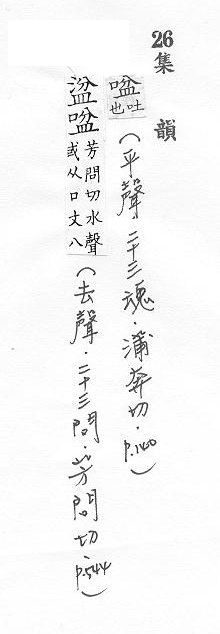 26集韻
㖹吐也（平聲．二十三魂．蒲奔切．P.140）
湓㖹芳問切水聲或从口丈八（去聲．二十三問．芳問切．P.544）